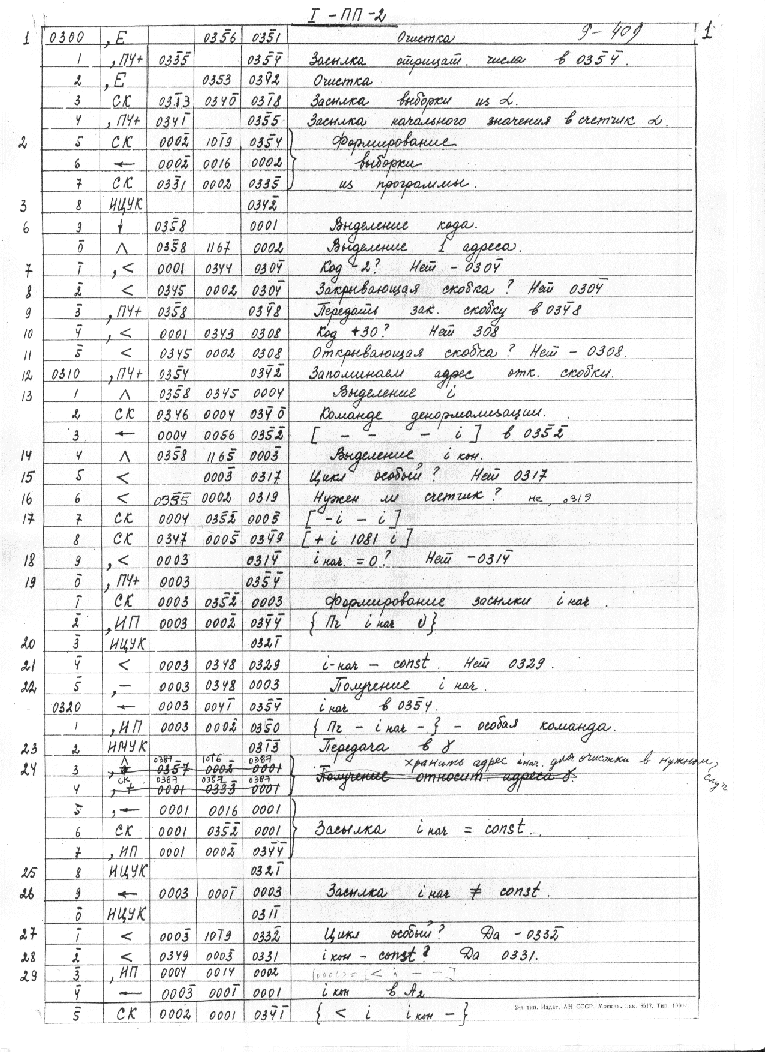 I - ПП - 2
9 - 409 1
1 0300 , Е 035̄6 035̄1 Очистка
1 , ПЧ+ 033̄5̄ 035̄4̄ Засылка отрицат. числа в 035̄4̄.
2 , Е 0353 034̄2 Очистка
3 СК 034̄3 0340̄ 031̄8 Засылка выборки из α.
4 , ПЧ+ 0341̄ 035̄5 Засылка начального значения в счетчик α.
2 5 СК 0002̄ 101̄9 035̄4 Формирование
6 ← 0002̄ 0016 0002 выборки
7 СК 033̄1 0002 0335̄ из программы.
3 8 ИЦУК 0342̄
6 9 035̄8 0001 Выделение кода.
0̄ ∧ 035̄8 1167 0002 Выделение 1 адреса.
7 1̄ , < 0001 0344 0304̄ Код -2? Нет - 0304̄
8 2̄ < 0345 0002 0304̄ Закрывающая скобка? Нет 0304̄
9 3̄ , ПЧ+ 035̄8 034̄8 Передать зак. скобку в 034̄8
10 4̄ , < 0001 0343 0308 Код +30? Нет 308
11 5̄ < 0345 0002 0308 Открывающая скобка? Нет - 0308.
12 0310 , ПЧ+ 035̄4 034̄2̄ Запоминаем адрес отк. скобки.
13 1 ∧ 035̄8 0345 0004 Выделение i
2 СК 0346 0004 034̄0̄ Команде денормализации.
3 ← 0004 0056 035̄2̄ [ - - - i ] в 0352̄
14 4 ∧ 035̄8 1165 0003̄ Выделение i кон.
15 5 < 0003̄ 0317 Цикл особый? Нет 0317
16 6 < 035̄5 0002 0319 Нужен ли счетчик? не 0319
17 7 СК 0004 035̄2̄ 0005̄ [ - i - i ]
8 СК 0347 0005̄ 034̄9 [ + i 1081 i ]
18 9 , < 0003 031̄4̄ i нач. = 0? Нет - 031̄4̄
19 0̄ , ПЧ+ 0003 035̄4̄
1̄ СК 0003 035̄2̄ 0003 Формирование засылки i нач.
2̄ , ИП 0003 0002̄ 034̄4̄ { Пч i нач 0 }
20 3̄ ИЦУК 0321̄
21 4̄ < 0003 0348 0329 i-нач - const. Нет 0329.
22 5̄ , - 0003 0348 0003 Получение i нач.
0320 ← 0003 0041̄ 035̄4 i нач в 035̄4.
1 , ИП 0003 0002̄ 035̄0 { Пч - i нач - } - особая команда.
23 2 ИЦУК 031̄3̄ Передача в γ
24 3 ∧ 0387 1016 0387 хранить адрес i нач. для очистки в нужном
4 СК 0387 0387 Получение относит. адреса γ.
5̄ , ← 0001 0016 0001
6 СК 0001 035̄2̄ 0001 Засылка i нач = const.
7 , ИП 0001 0002̄ 034̄4̄
25 8 ИЦУК 0321̄
26 9 ← 0003 0001̄ 0003 Засылка i нач ≠ const.
0̄ ИЦУК 031̄1̄
27 1̄ < 0003̄ 101̄9 0332̄ Цикл особый? Да - 0332̄
28 2̄ < 0349 0003̄ 0331 i кон - const? Да 0331.
29 3̄ , ИП 0004 0014 0002
4̄ ← 0003̄ 0001̄ 0001 i кон в А₂
5̄ СК 0002 0001 034̄1̄ { < i i кон - }